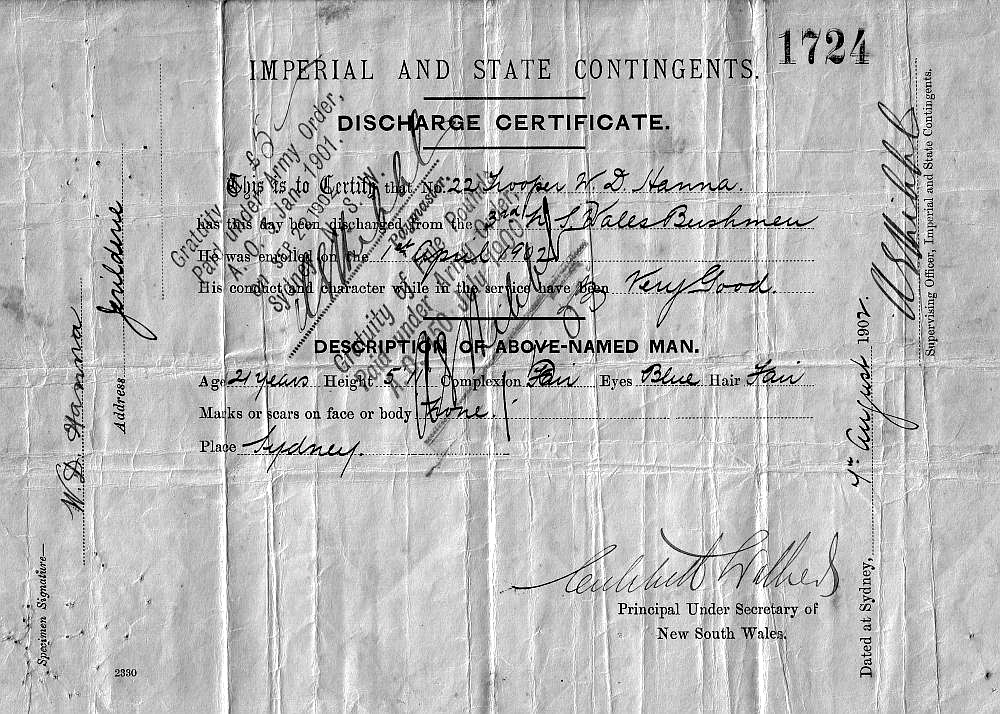 1724
IMPERIAL AND STATE CONTINGENTS.
DISCHARGE CERTIFICATE.
This is to Certify that No. 22 Trooper W. D. Hanna.
has this day been discharged from the 3rd N S Wales Bushmen
He was enrolled on the 1st April 1902
His conduct and character while in the service have been Very Good.
DESCRIPTION OF ABOVE-NAMED MAN.
Age 21 years Height 5 Complexion Fair Eyes Blue Hair Fair
Marks or scars on face or body None.
Place Sydney.
Principal Under Secretary of
New South Wales.
2330
Specimen Signature—
W. D. Hanna
Address Jerilderie
Dated at Sydney, 4th August 1902.
Supervising Officer, Imperial and State Contingents.
Gratuity £5
Paid under Army Order,
A. O. 5, Jan. 1901.
on SEP 22 1902
Sydney, N. S. W.
Paymaster.
Gratuity of Five Pounds
Paid under Army Order,
A. O. 150 July 1900